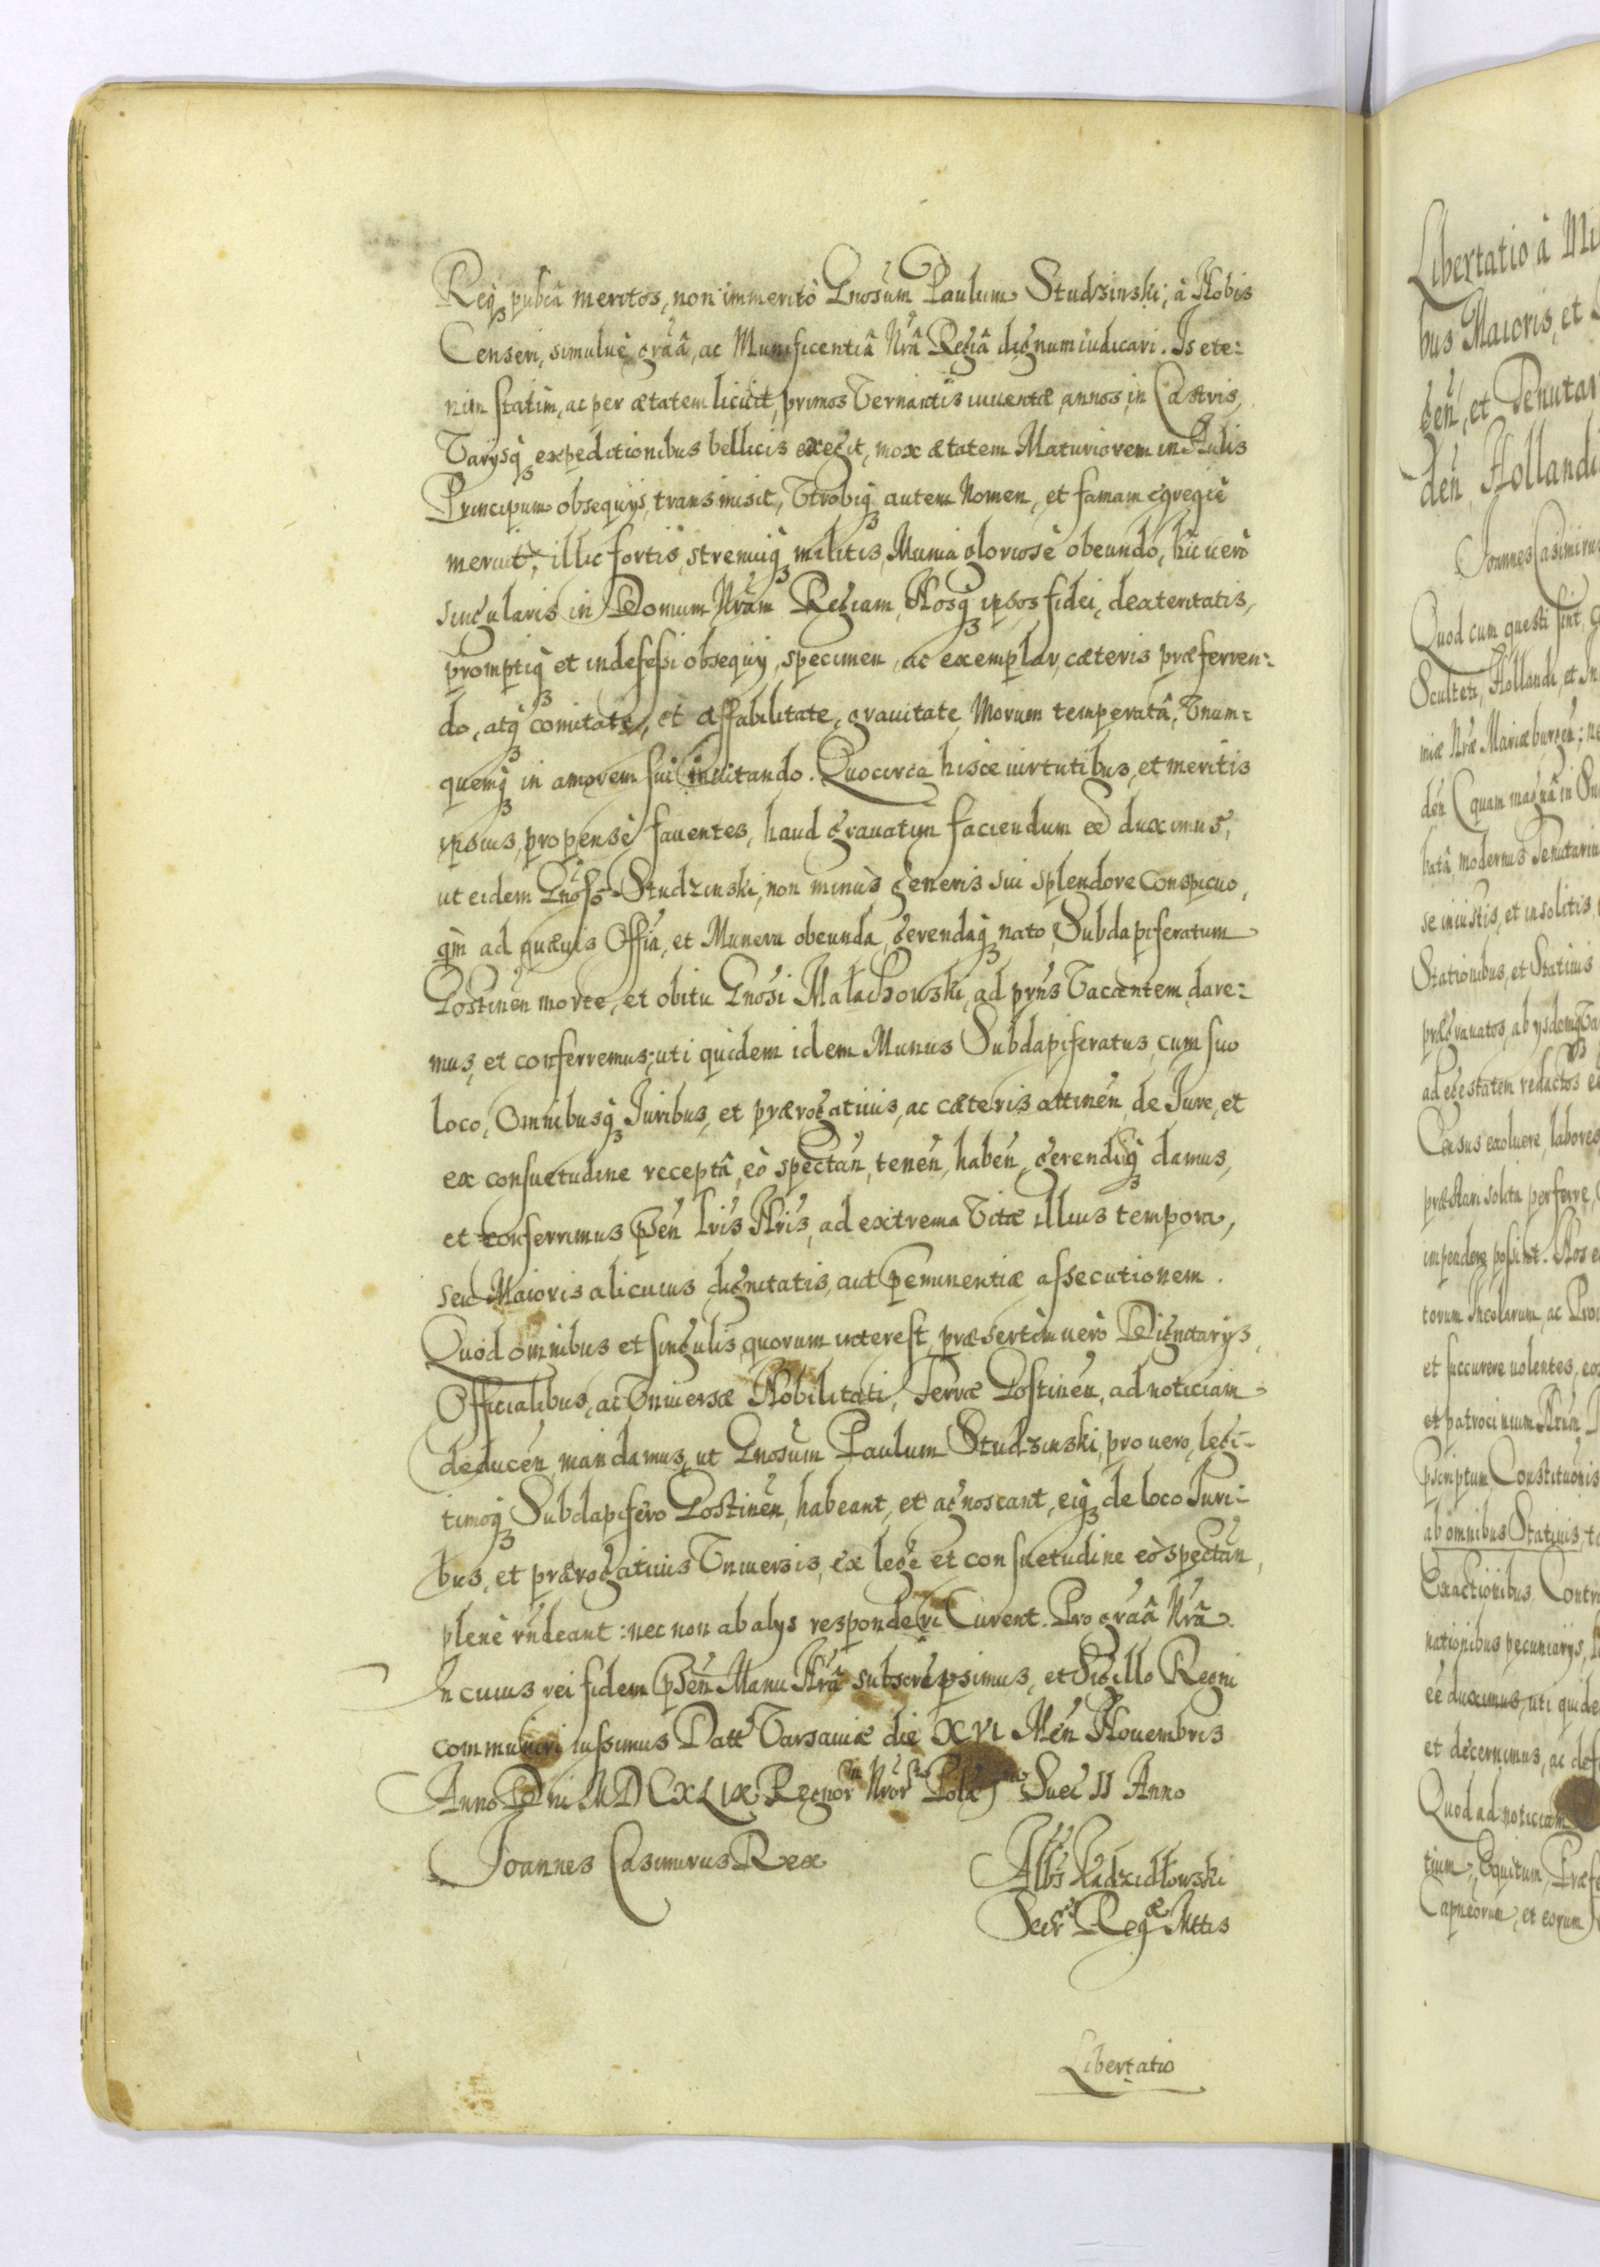 Reiq pubca meritos, non immeritò Gnosum Paulum Studzinski, à Nobis
Censeri, simulue grãâ, ac Munificentiâ Nrâ Regiâ dignum iudicari. Is ete:
nim statim, ac per ætatem licuit, primos Vernantis iuuentæ annos, in Castris,
Varysq expeditionibus bellicis exegit, mox ætatem Maturiorem in Aulis
Principum obsequys, transmisit, Vtrobiq autem Nomen, et famam egregiè
meruit, illic fortis, strenuiq militis, Munia gloriosè obeundo, hic uerò
singularis in Domum Nrãm Regiam, Nosq ipsos, fidei, dexteritatis,
promptiq et indefessi obsequy, specimen, ac exemplar, cæteris præferren:
do, atq comitate, et affabilitate, grauitate Morum temperatâ, Vnum:
quemq in amorem sui inuitando. Quocirca hisce uirtutibus, et meritis
ipsius, propensè fauentes, haud grauatim faciendum eê duximus,
ut eidem Gnoso Studzinski, non minùs generis sui splendore Conspicuo,
qm ad quæuis Offia, et Munera obeunda, gerendaq nato, Subdapiferatum
Gostinen morte, et obitu Gnosi Małachowski, ad pñs Vacantem, dare:
mus, et conferremus; uti quidem idem Munus Subdapiferatus, cum suo
loco, Omnibusq Iuribus, et prærogatiuis, ac cæteris attinen, de Iure, et
ex consuetudine receptâ, eò spectan, tenen, haben, gerendiq damus,
et conferimus psen Lris Nris, ad extrema Vitæ illius tempora,
seu Maioris alicuius dignitatis, aut peminentiæ assecutionem.
Quod omnibus et singulis, quorum interest, præsertim uerò Dignitarys,
Officialibus, ac Vniuersæ Nobilitati, Terræ Gostinen, ad noticiam
deducen, mandamus, ut Gnosum Paulum Studzinski, pro uero, legi-
timoq Subdapifero Gostinen, habeant, et agnoscant, eiq de loco Iuri:
bus, et prærogatiuis Vniuersis, ex lege et consuetudine eò spectan,
plenè rñdeant: nec non ab alys responderi Curent. Pro grãâ Nrâ.
In cuius rei fidem psen Manu Nrâ subscripsimus, et Sigillo Regni
communiri iussimus Datt Varsauiæ die XVI Men Nouembris
Anno Dni MDCXLIX Regnor Nror Polæ Suec II Anno
Joannes Casimirus Rex
Albs Kadzidłowski
Secr Reg Mttis
Libertatio
Libertatio à
bus Maioris, et
Hollandi
Joannes Casimirus
Quod cum questi sint
Sculteti, Hollandi, et
miæ Nræ Mariæburgen: ne
den (quam magnâ in
batâ, modernus Tenutarius
se iniustis, et insolitis,
Stationibus, et Statiuis
prægrauatos, ab ysdemq
ad egestatem redactos
Census exoluere, labores
præstari solita perferre,
impendere possint. Nos
torum Incolarum, ac
et succurere uolentes, eos
et patrocinium Nrum
pscriptum Constitutionis
ab omnibus Statiuis,
Exactionibus, Contri
nationibus pecuniarys,
eê duximus, uti quide
et decernimus, ac
Quod ad noticiam
tium, Equitum, Præfe
Capneorum, et eorum